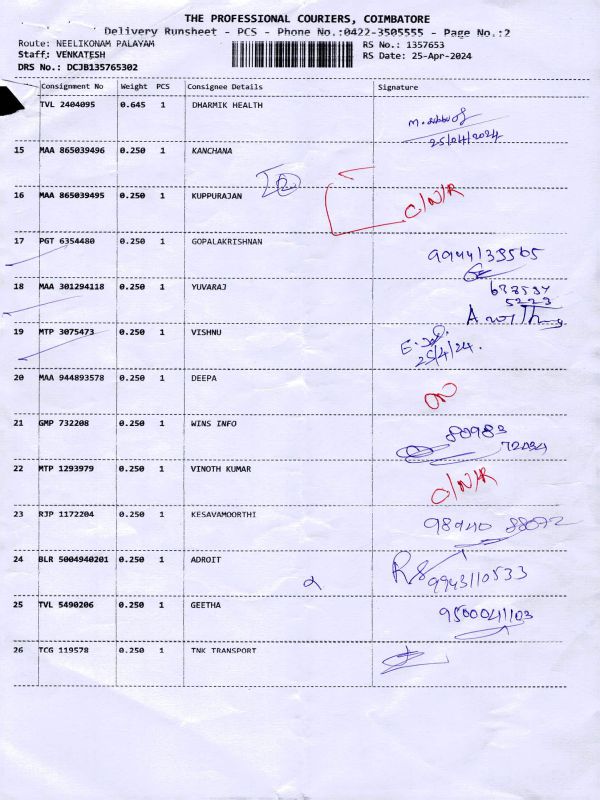 THE PROFESSIONAL COURIERS, COIMBATORE
Delivery Runsheet - PCS - Phone No.:0422-3505555 - Page No.:2
Route: NEELIKONAM PALAYAM RS No.: 1357653
Staff: VENKATESH RS Date: 25-Apr-2024
DRS No.: DCJB135765302
Consignment No Weight PCS Consignee Details Signature
TVL 2404095 0.645 1 DHARMIK HEALTH
25/04/2024
15 MAA 865039496 0.250 1 KANCHANA
16 MAA 865039495 0.250 1 KUPPURAJAN C/N/R
17 PGT 6354480 0.250 1 GOPALAKRISHNAN 9944133565
18 MAA 301294118 0.250 1 YUVARAJ
19 MTP 3075473 0.250 1 VISHNU
25/4/24.
20 MAA 944893578 0.250 1 DEEPA
21 GMP 732208 0.250 1 WINS INFO 80983
22 MTP 1293979 0.250 1 VINOTH KUMAR C/N/R
23 RJP 1172204 0.250 1 KESAVAMOORTHI 98940 88072
24 BLR 5004940201 0.250 1 ADROIT 9943110533
25 TVL 5490206 0.250 1 GEETHA 9500041103
26 TCG 119578 0.250 1 TNK TRANSPORT